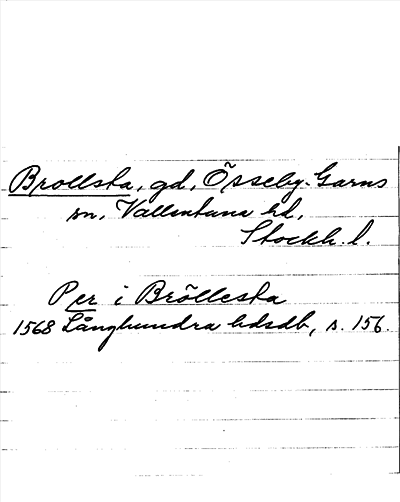 Brollsta, gd, Össeby-Garns
sn, Vallentuna hd,
Stockh. l.
Per i Bröllesta
1568 Långhundra hdsdb, s. 156.